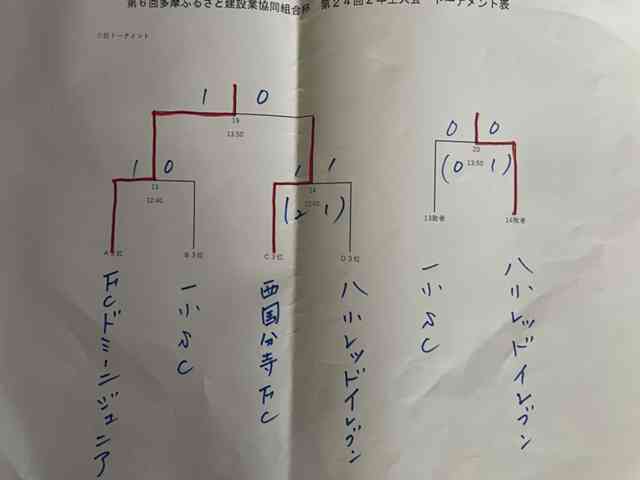 第6回多摩ふるさと建設業協同組合杯 第24回2年生大会 トーナメント表
1 0
19
13:50
0 0
20
13:50
(0 1)
1 0
13
12:40
1 1
14
12:40
(2 1)
B3位
C3位
D3位
13敗者
14敗者
FCドミニジュニア
一小SC
西国分寺FC
八小レッドイレブン
一小SC
八小レッドイレブン